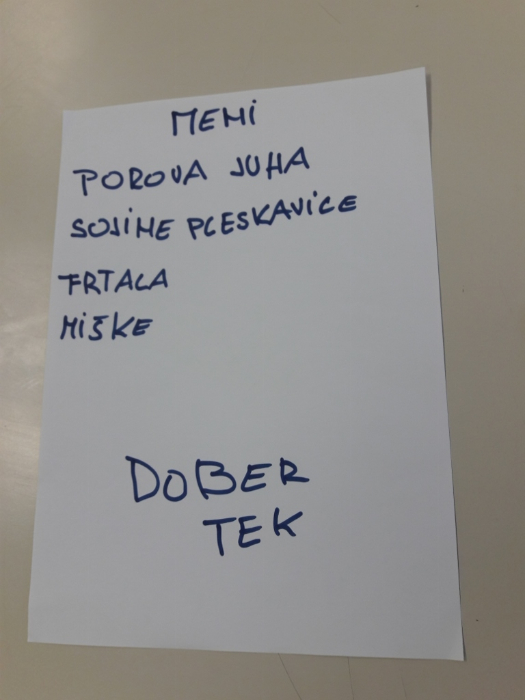 MENI
POROVA JUHA
SOJINE PLESKAVICE
FRTALA
MIŠKE
DOBER
TEK